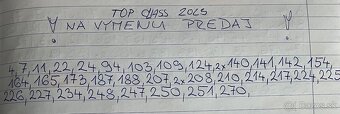 TOP CLASS 2025
! NA VYMENU PREDAJ !
4,7,11,22,24,94,103,109,124,2x140,141,142,154,
164,165,173,187,188,207,2x208,210,214,217,224,225
226,227,234,248,247,250,251,270,
bazos.sk